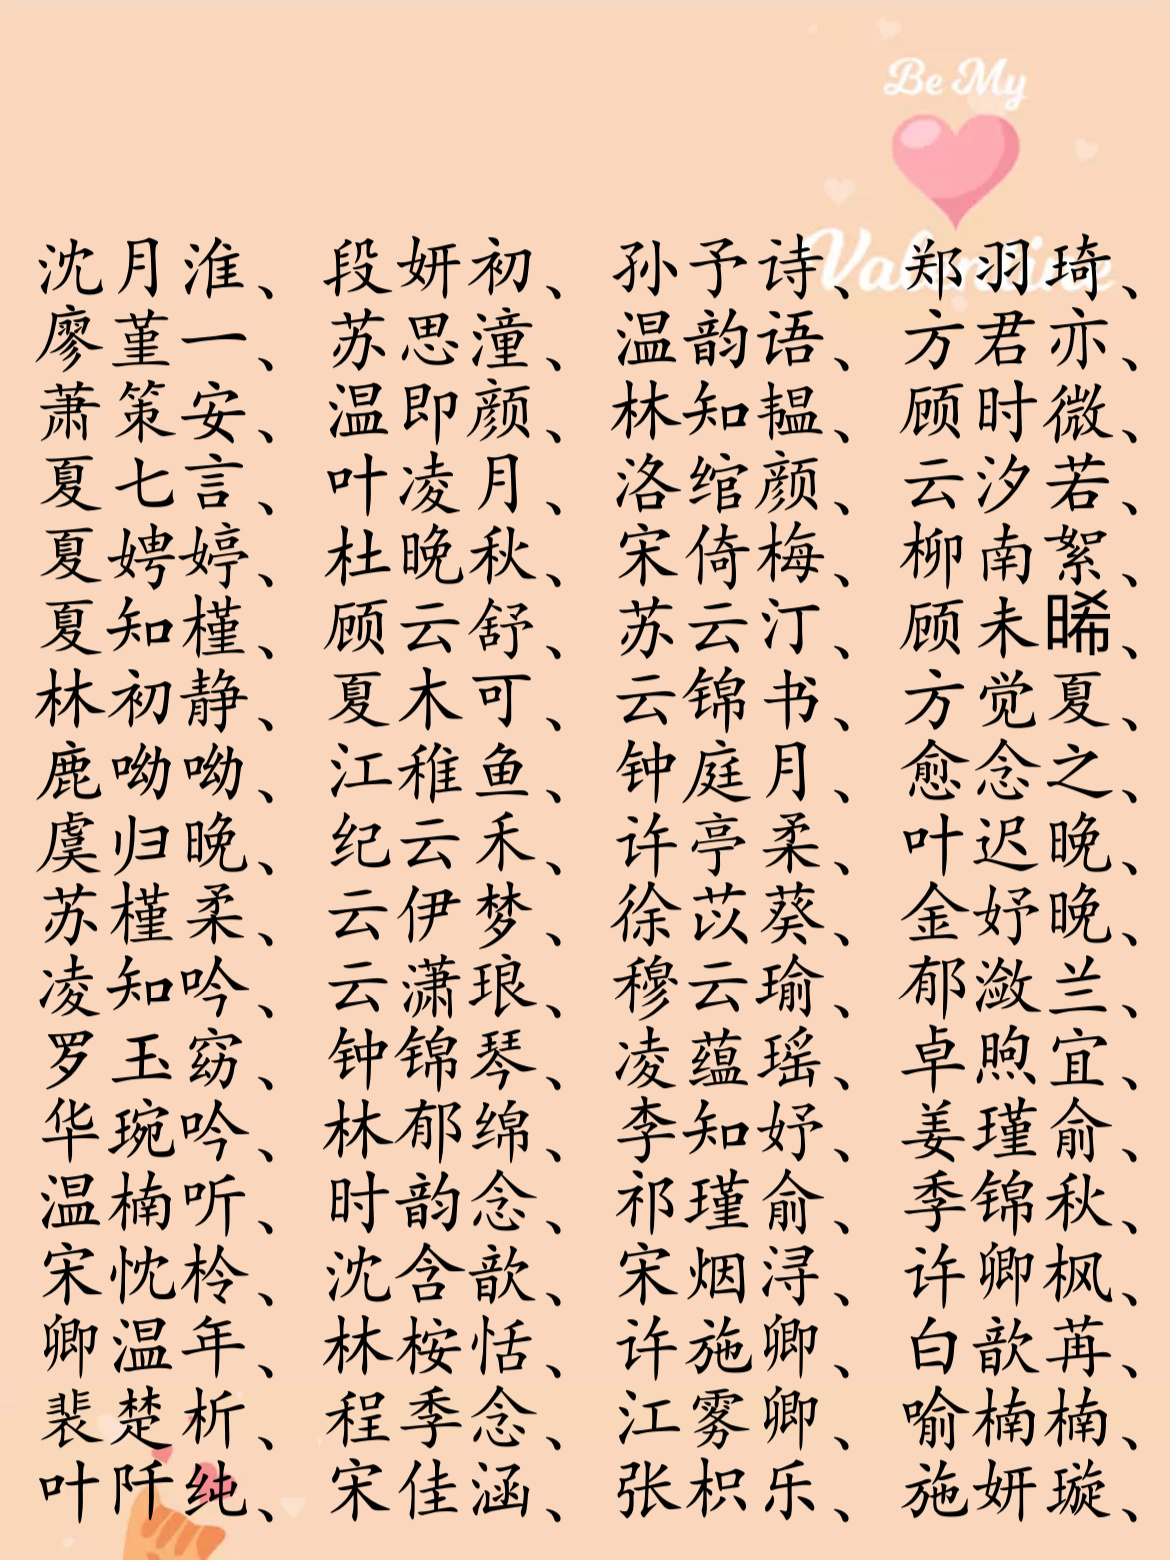 Be My
Valentine
沈月淮、 段妍初、 孙予诗、 郑羽琦、
廖堇一、 苏思潼、 温韵语、 方君亦、
萧策安、 温即颜、 林知韫、 顾时微、
夏七言、 叶凌月、 洛绾颜、 云汐若、
夏娉婷、 杜晚秋、 宋倚梅、 柳南絮、
夏知槿、 顾云舒、 苏云汀、 顾未晞、
林初静、 夏木可、 云锦书、 方觉夏、
鹿呦呦、 江稚鱼、 钟庭月、 愈念之、
虞归晚、 纪云禾、 许亭柔、 叶迟晚、
苏槿柔、 云伊梦、 徐苡葵、 金妤晚、
凌知吟、 云潇琅、 穆云瑜、 郁潋兰、
罗玉窈、 钟锦琴、 凌蕴瑶、 卓煦宜、
华琬吟、 林郁绵、 李知妤、 姜瑾俞、
温楠听、 时韵念、 祁瑾俞、 季锦秋、
宋忱柃、 沈含歆、 宋烟浔、 许卿枫、
卿温年、 林桉恬、 许施卿、 白歆苒、
裴楚析、 程季念、 江雾卿、 喻楠楠、
叶阡纯、 宋佳涵、 张枳乐、 施妍璇、